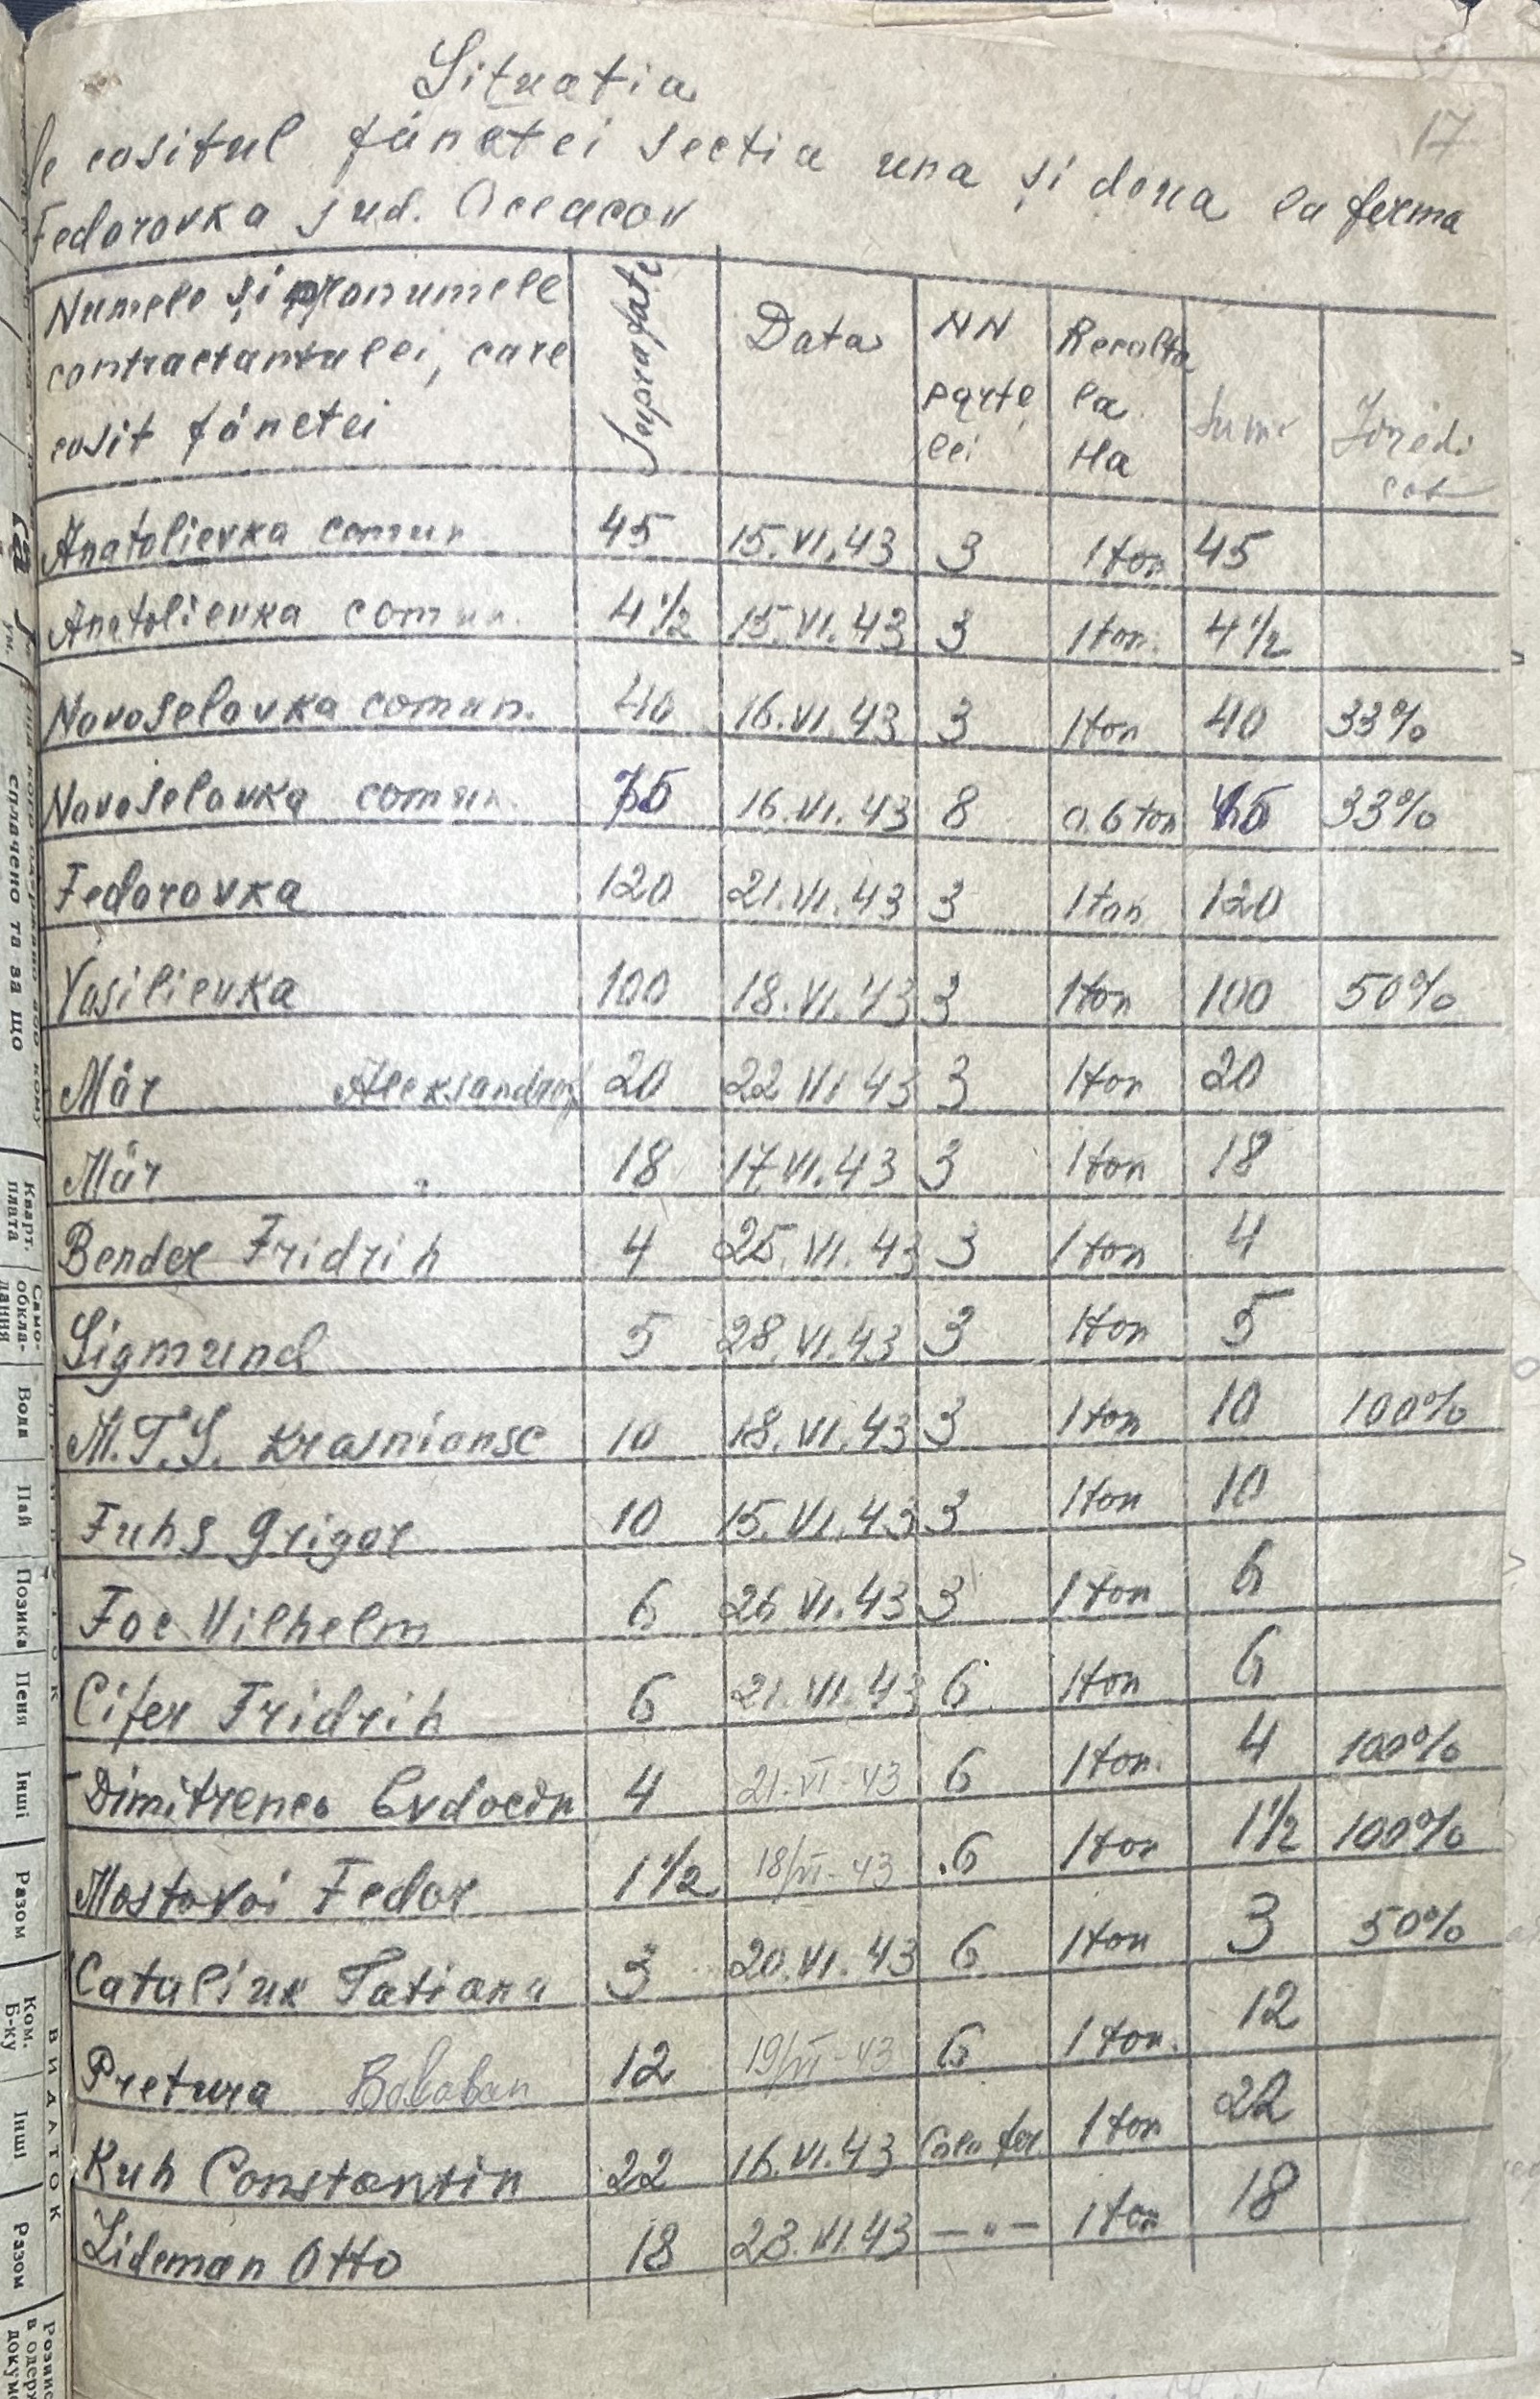 17
Situatia
de cositul fânetei sectia una și doua la ferma
Fedorovka jud. Oceacov
Numele și pronumele contractantulei, care cosit fânetei | Suprafate | Data | NN partelei | Recolta la Ha | Suma
Anatolievka comun. | 45 | 15.VI.43 | 3 | 1 ton | 45
Anatolievka comun. | 4 1/2 | 15.VI.43 | 3 | 1 ton. | 4 1/2
Novoselovka comun. | 40 | 16.VI.43 | 3 | 1 ton | 40 | 33%
Novoselovka comun. | 75 | 16.VI.43 | 8 | 0.6 ton | 45 | 33%
Fedorovka | 120 | 21.VI.43 | 3 | 1 ton | 120
Vasilievka | 100 | 18.VI.43 | 3 | 1 ton | 100 | 50%
Mär Aleksandrof | 20 | 22.VI.43 | 3 | 1 ton | 20
Mär " | 18 | 17.VI.43 | 3 | 1 ton | 18
Bender Fridrih | 4 | 25.VI.43 | 3 | 1 ton | 4
Sigmund | 5 | 28.VI.43 | 3 | 1 ton | 5
M.T.S. Krasnianse | 10 | 18.VI.43 | 3 | 1 ton | 10 | 100%
Fuhs Grigor | 10 | 15.VI.43 | 3 | 1 ton | 10
Foc Vilhelm | 6 | 26.VI.43 | 3 | 1 ton | 6
Cifer Fridrih | 6 | 21.VI.43 | 6 | 1 ton | 6
Dimitrenco Evdocin | 4 | 21-VI-43 | 6 | 1 ton. | 4 | 100%
Mostovoi Fedor | 1 1/2 | 18/VI-43 | 6 | 1 ton | 1 1/2 | 100%
Cataliuk Tatiana | 3 | 20.VI.43 | 6 | 1 ton | 3 | 50%
Pretura Balaban | 12 | 19/VI-43 | 6 | 1 ton. | 12
Kuh Constantin | 22 | 16.VI.43 | 1 ton | 22
Lideman Otto | 18 | 23.VI.43 | —"— | 1 ton | 18
сплачено та за що
Кварт. плата
Само-обкла-дання
Вода
Пай
Позика
Пеня
Інші
Разом
Ком. Б-ку
Інші
Разом
ВИДАТОК